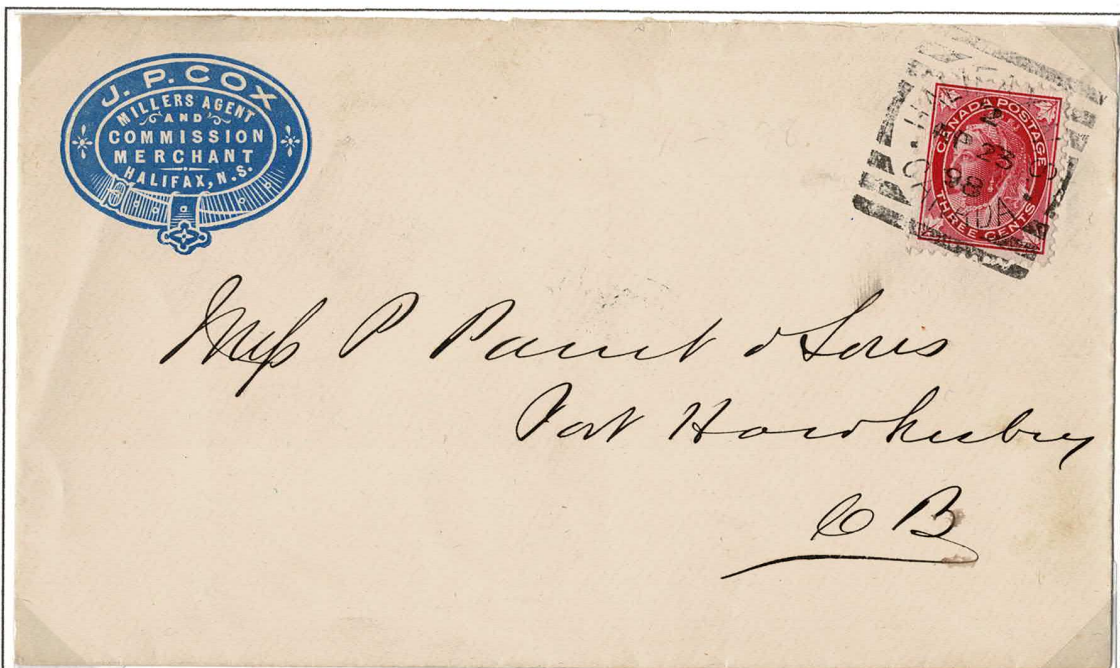 J. P. COX
MILLERS AGENT
AND
COMMISSION
MERCHANT
HALIFAX, N.S.
CANADA POSTAGE
THREE CENTS
HALIFAX N.S.
2
AP 23
98
CANADA
Mess P & Sons
Port Hawkesbury
C B